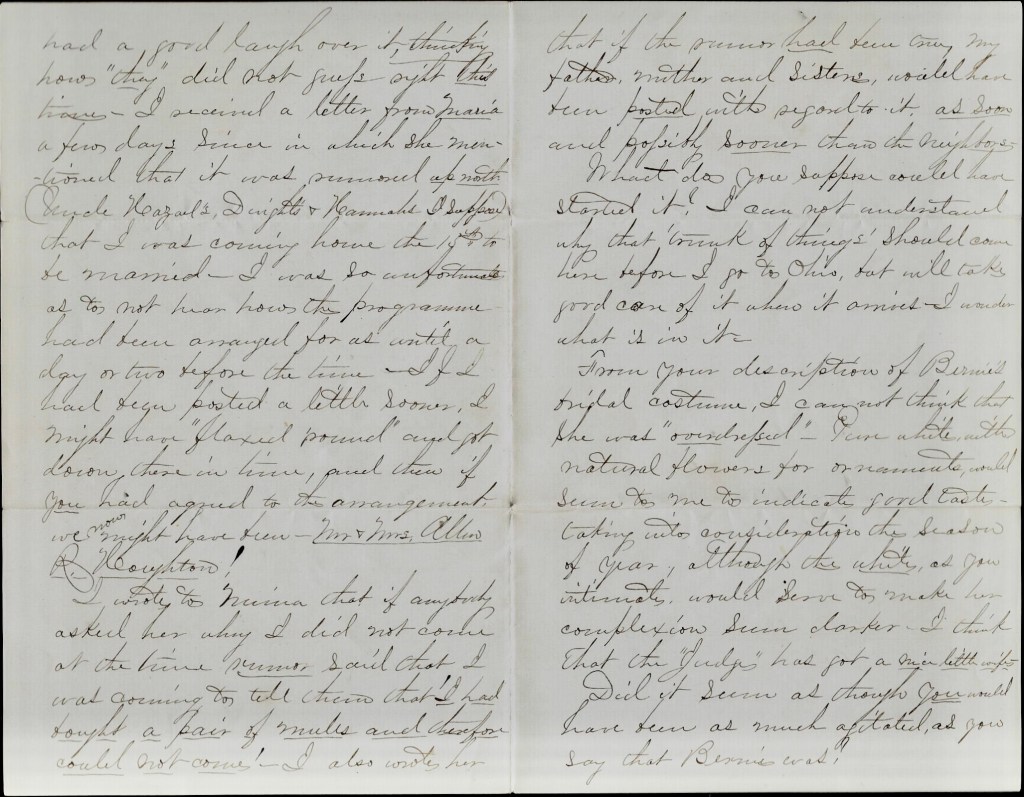 had a, good laugh over it, thinking
how "they" did not guess right this
time - I received a letter from Maria
a few days since in which she men-
-tioned that it was rumored up north
(Uncle Hazael's, Dwights & Hannahs I suppose)
that I was coming home the 19th to
be married - I was so unfortunate
as to not hear how the programme
had been arranged for us until a
day or two before the time - If I
had been posted a little sooner, I
might have "flaxed round" and got
down, there in time, and then if
you had agreed to the arrangement
we now might have been - Mr & Mrs. Allen
Houghton!
I, wrote to Minna that if anybody
asked her why I did not come
at the time rumor said that I
was coming to tell them that 'I had
bought a pair of mules and therefore
could not come' - I also wrote her
that if the rumor had been true, my
father, mother and sisters, would have
been posted, with regard to it, as soon
and possibly sooner than the neighbors -
What do you suppose could have
started it? I can not understand
why that 'trunk of things' should come
here before I go to Ohio, but will take
good care of it when it arrives - I wonder
what is in it -
From your description of Bernie's
bridal costume, I can not think that
she was "overdressed" - Pure white, with
natural flowers for ornaments, would
seem to me to indicate good taste -
taking into consideration the season
of year, although the white, as you
intimate, would serve to make her
complexion seem darker - I think
that the "Judge" has got a nice little wife -
Did it seem as though you would
have been as much agitated, as you
say that Bernie was?